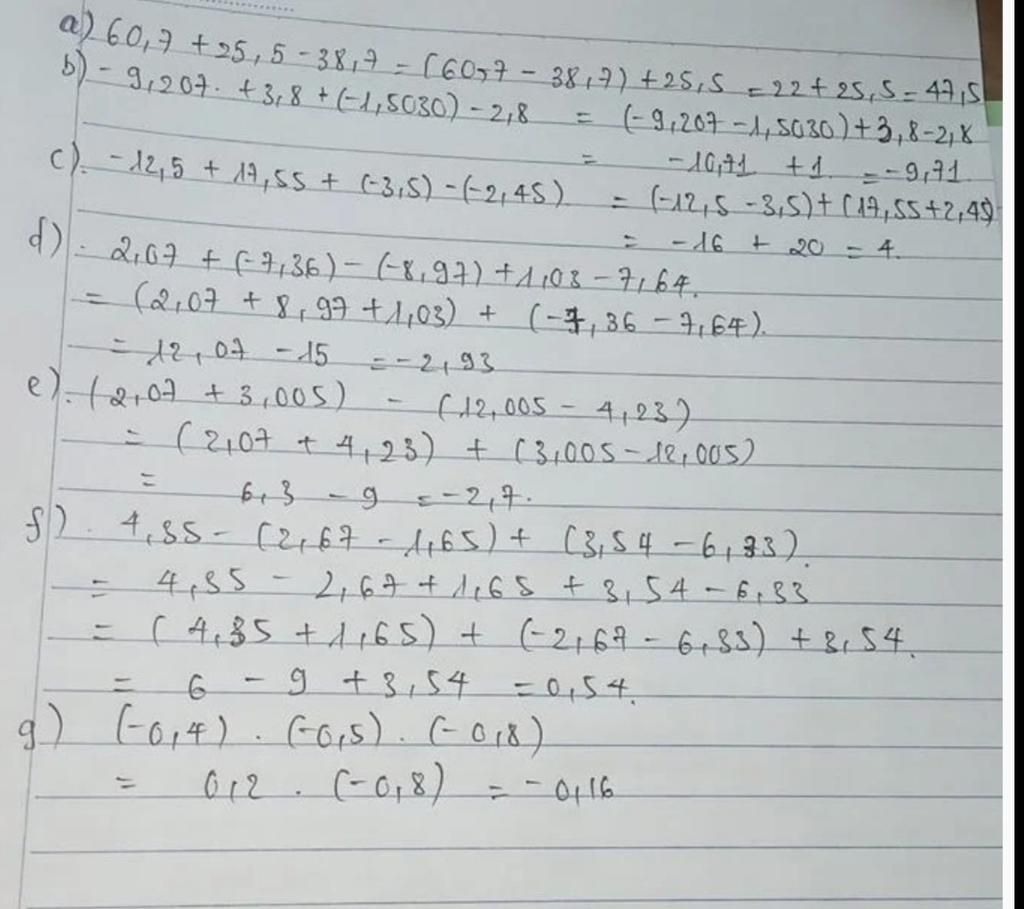 a) 60,7 + 25,5 - 38,7 = (60,7 - 38,7) + 25,5 = 22 + 25,5 = 47,5
b) - 9,207. + 3,8 + (-1,5030) - 2,8 = (-9,207 - 1,5030) + 3,8 - 2,8
= -10,71 + 1 = -9,71
c). -12,5 + 17,55 + (-3,5) - (-2,45) = (-12,5 - 3,5) + (17,55 + 2,45)
= -16 + 20 = 4.
d). 2,07 + (-7,36) - (-8,97) + 1,03 - 7,64.
= (2,07 + 8,97 + 1,03) + (-7,36 - 7,64).
= 12,07 - 15 = -2,93
e). (2,07 + 3,005) - (12,005 - 4,23)
= (2,07 + 4,23) + (3,005 - 12,005)
= 6,3 - 9 = -2,7.
f). 4,35 - (2,67 - 1,65) + (3,54 - 6,33).
= 4,35 - 2,67 + 1,65 + 3,54 - 6,33
= (4,35 + 1,65) + (-2,67 - 6,33) + 3,54.
= 6 - 9 + 3,54 = 0,54.
g) (-0,4) . (-0,5) . (-0,8)
= 0,2 . (-0,8) = -0,16